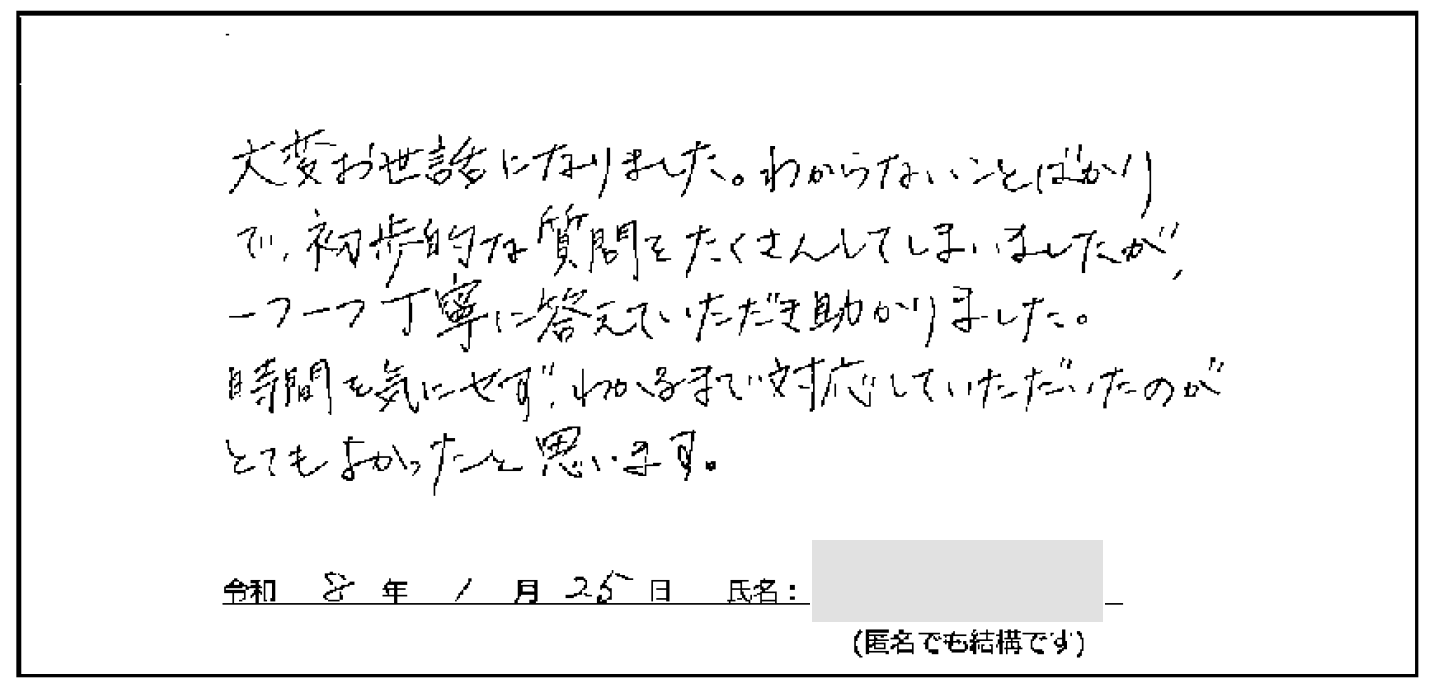 大変お世話になりました。わからないことばかり
で、初歩的な質問をたくさんしてしまいましたが、
一つ一つ丁寧に答えていただき助かりました。
時間を気にせず、わかるまで対応していただいたのが
とてもよかったと思います。
令和 8 年 1 月 25 日 氏名：
(匿名でも結構です)